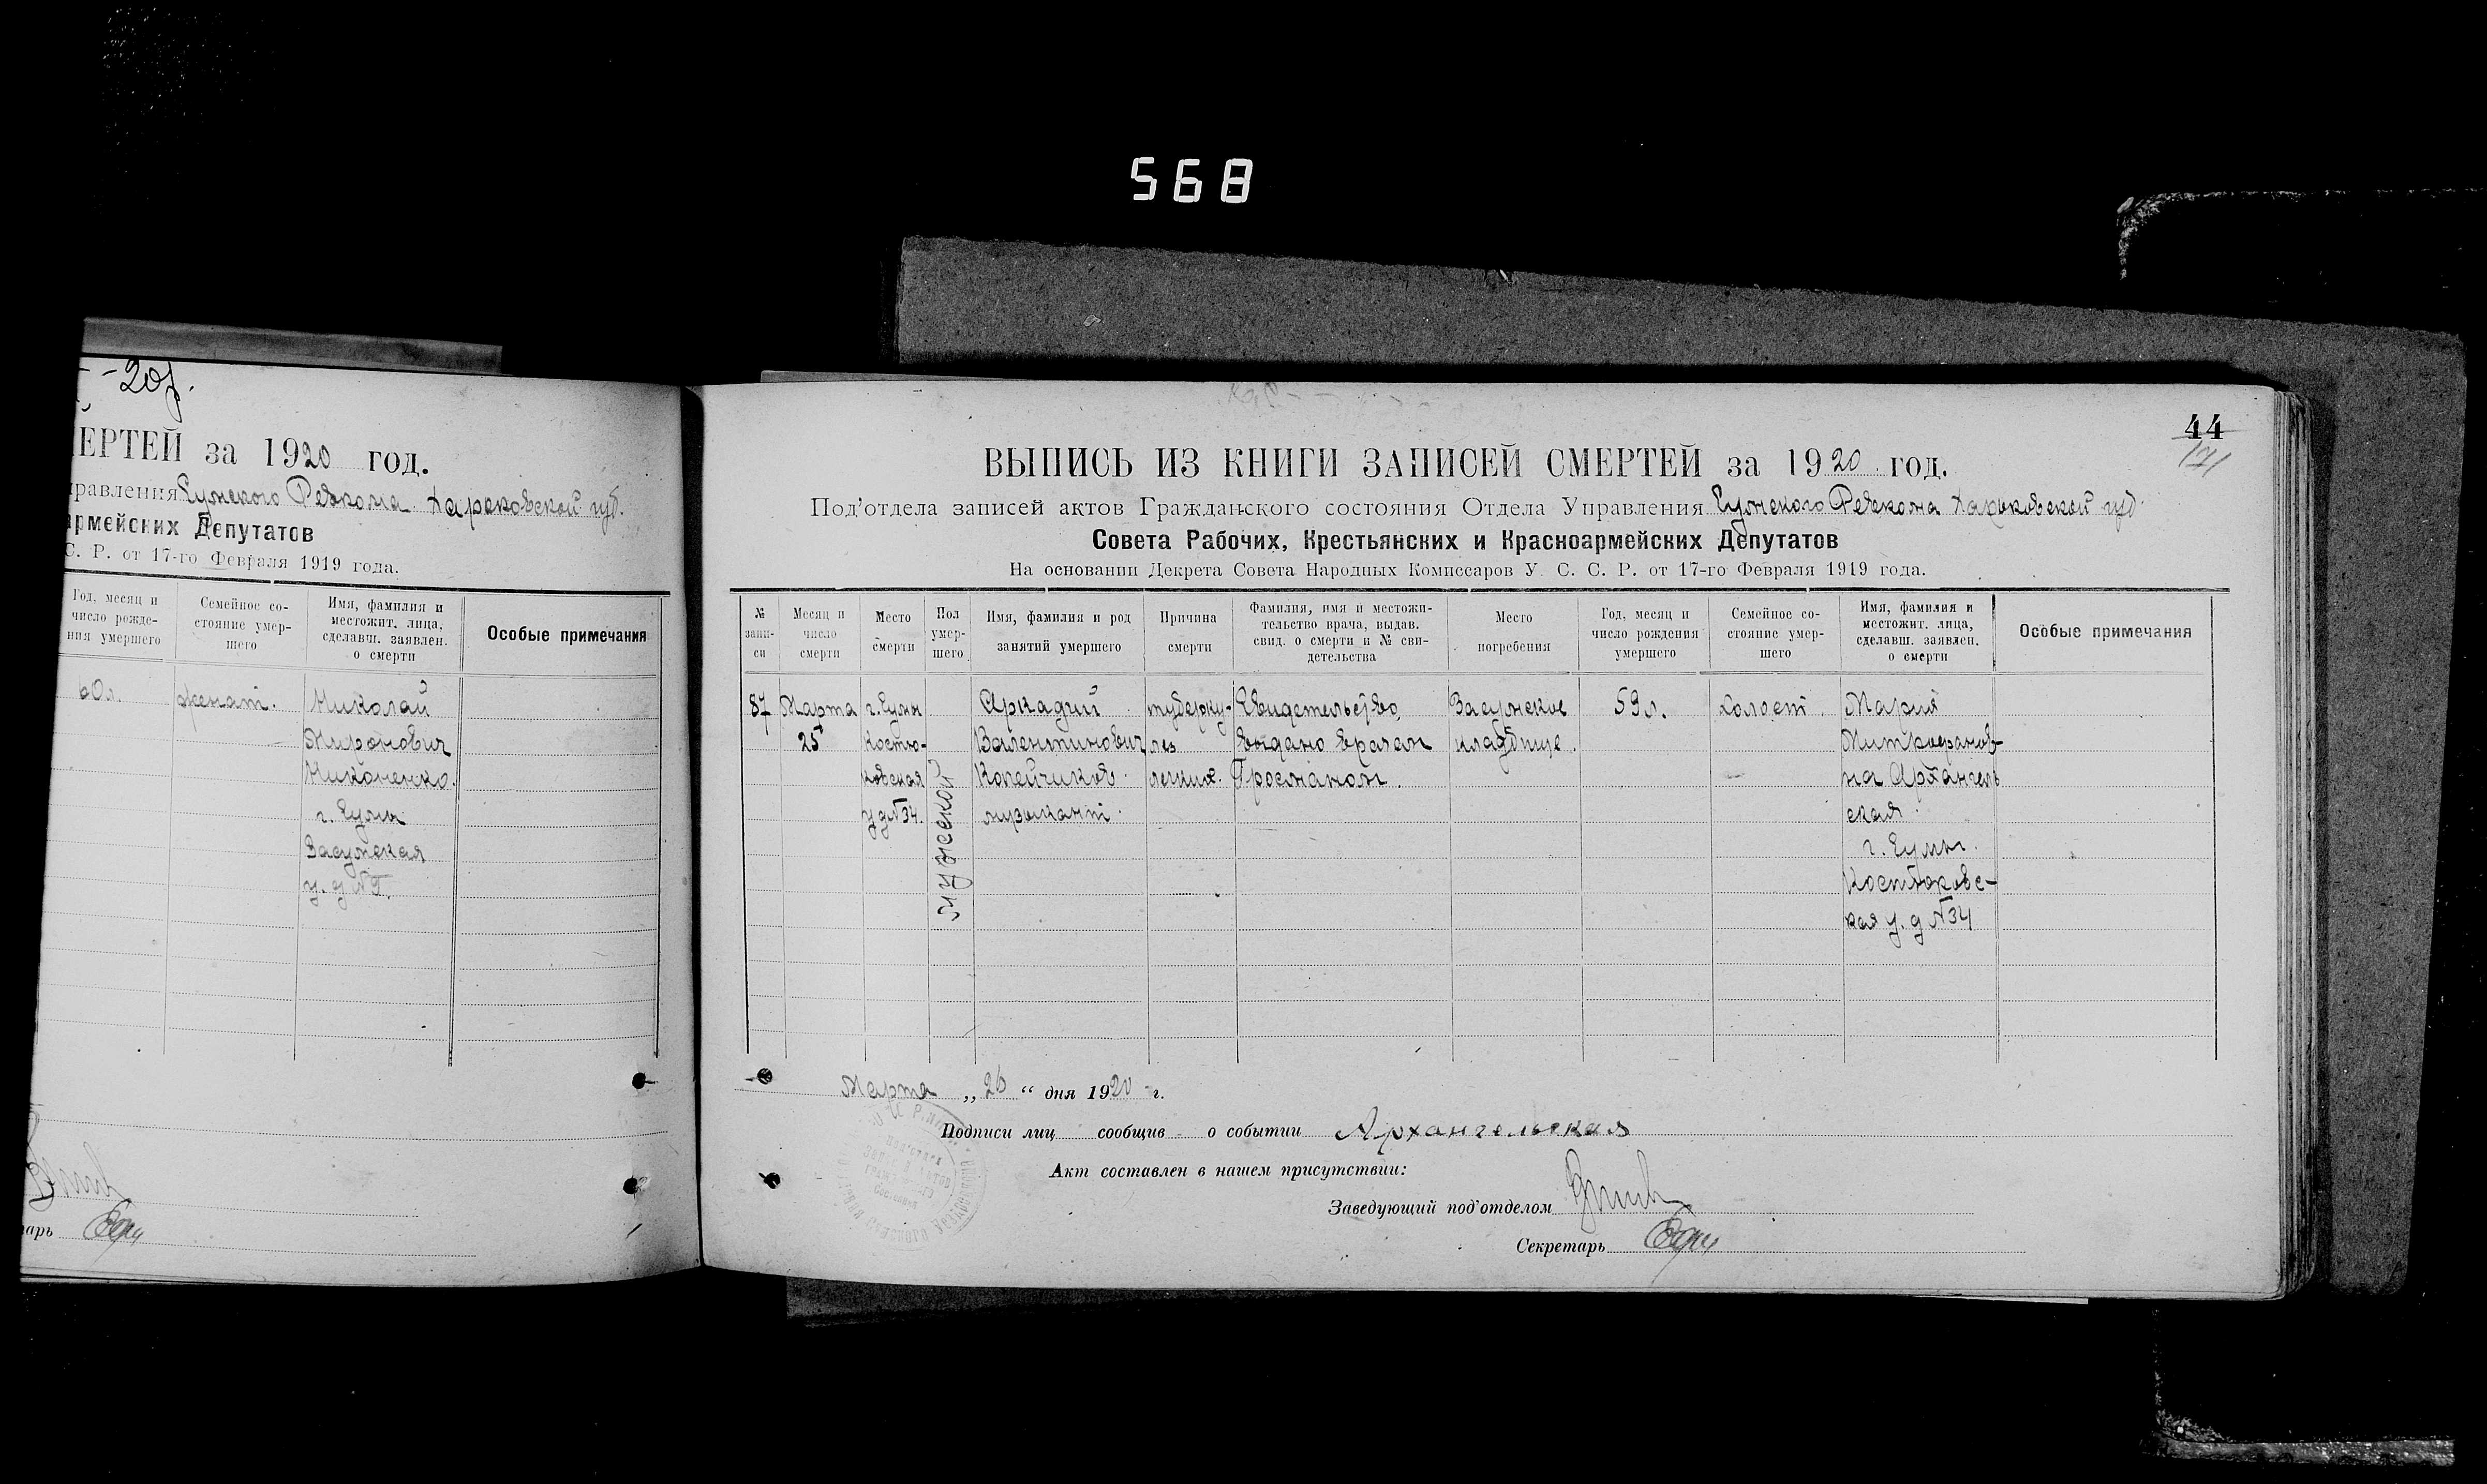 568
-20г.
ЕРТЕЙ за 1920 год.
правления Сумского Ревкома Харьковской губ.
армейских Депутатов
С. Р. от 17-го Февраля 1919 года.
Год, месяц и
число рожде-
ния умершего
Семейное со-
стояние умер-
шего
Имя, фамилия и
местожит. лица,
сделавш. заявлен.
о смерти
Особые примечания
60 л.
женат.
Николай
Миронович
Никоненко.
г. Сумы
Засумская
у. д №
арь
44
171
ВЫПИСЬ ИЗ КНИГИ ЗАПИСЕЙ СМЕРТЕЙ за 1920 год.
Под'отдела записей актов Гражданского состояния Отдела Управления Сумского Ревкома Харьковской губ.
Совета Рабочих, Крестьянских и Красноармейских Депутатов
На основании Декрета Совета Народных Комиссаров У. С. С. Р. от 17-го Февраля 1919 года.
№
запи-
си
Месяц и
число
смерти
Место
смерти
Пол
умер-
шего
Имя, фамилия и род
занятий умершего
Причина
смерти
Фамилия, имя и местожи-
тельство врача, выдав.
свид. о смерти и № сви-
детельства
Место
погребения
Год, месяц и
число рождения
умершего
Семейное со-
стояние умер-
шего
Имя, фамилия и
местожит. лица,
сделавш. заявлен.
о смерти
Особые примечания
87
Марта
25
г. Сумы
Костю-
ковская
у д № 34.
мужской
Аркадий
Валентинович
Копейчиков.
музыкант.
туберку-
лез
легких.
Свидетельство
выдано врачом
Гросманом.
Засумское
кладбище.
59 л.
холост.
Мария
Митрофанов-
на Архангель
ская
г. Сумы.
Костюковс-
кая у. д № 34
Марта „ 26 “ дня 1920 г.
Подписи лиц сообщив о событии Архангельская
Акт составлен в нашем присутствии:
Заведующий под'отделом
Секретарь